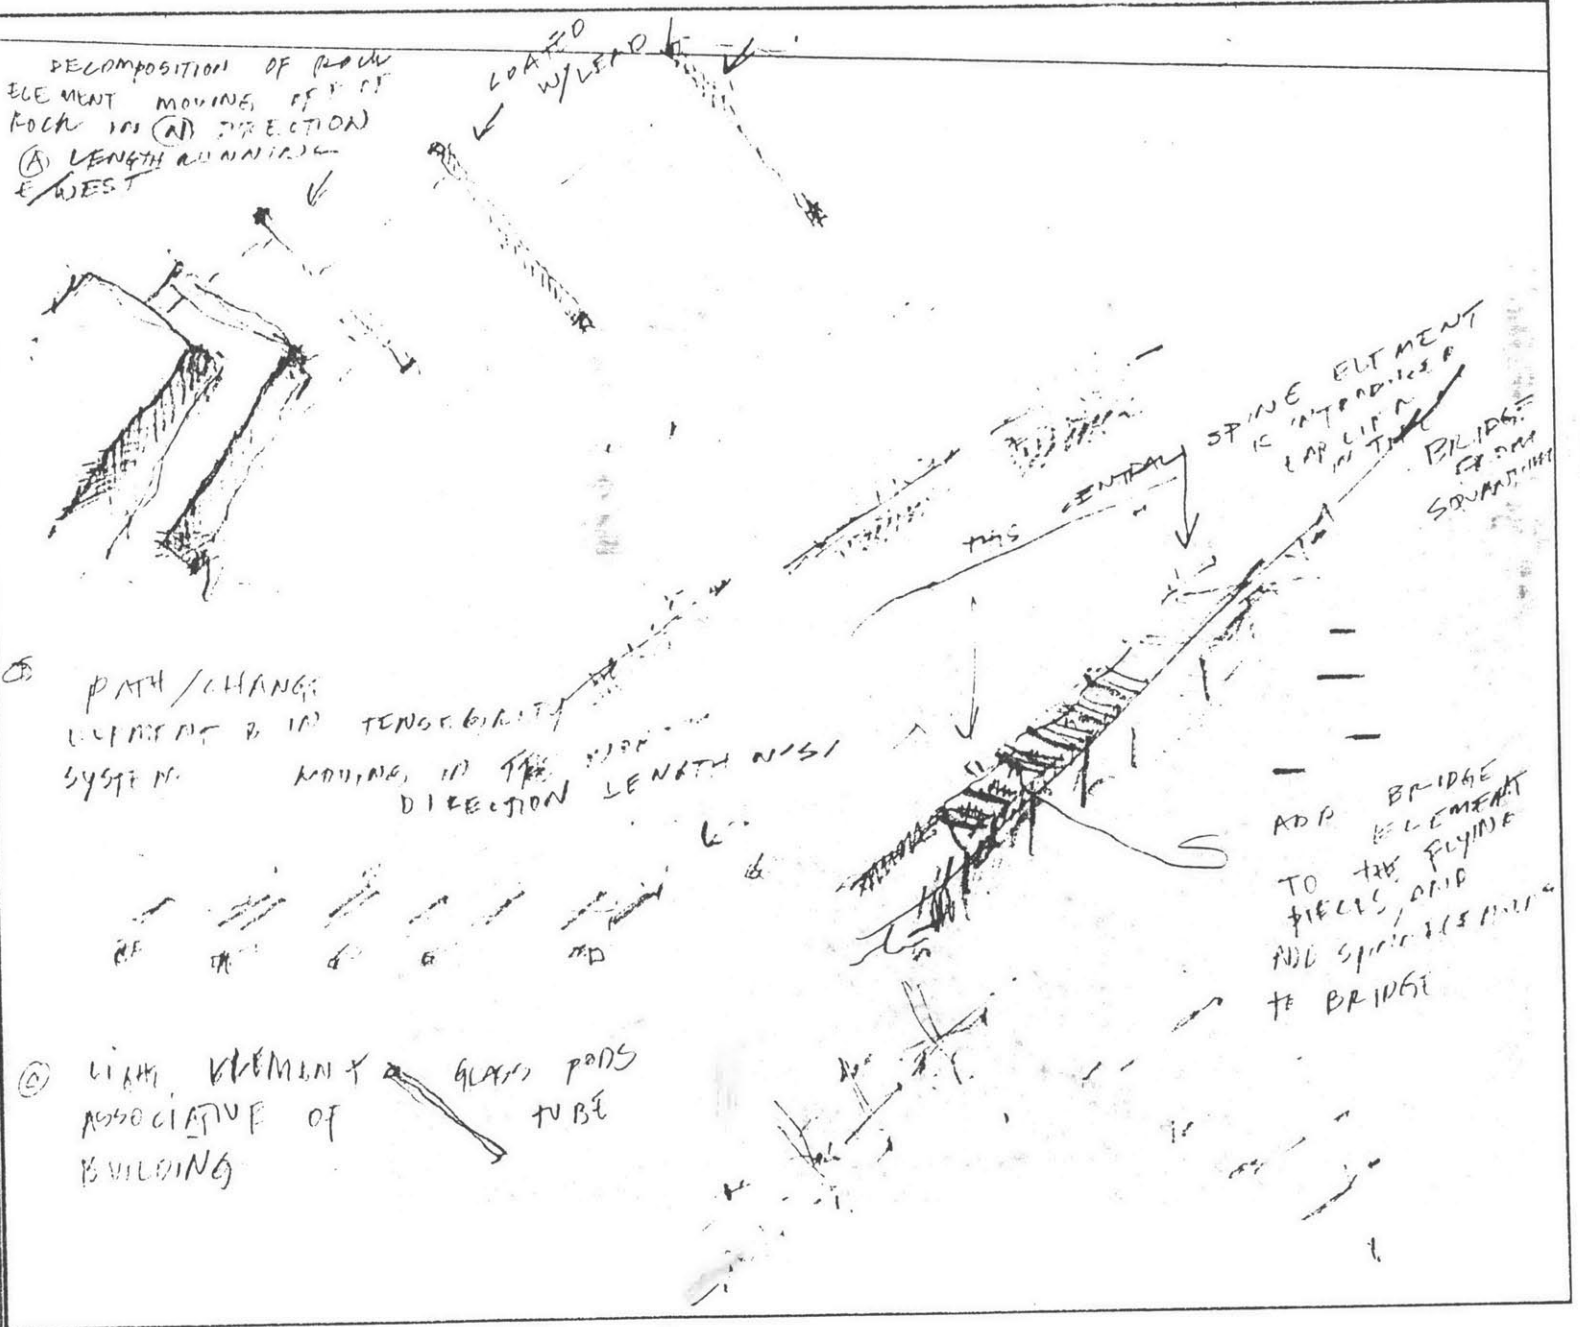 DECOMPOSITION OF ROCK
ELEMENT MOVING OFF OF
ROCK IN (N) DIRECTION
(A) LENGTH RUNNING
E/WEST
LOADED
W/LEAD
THIS CENTRAL SPINE ELEMENT
IS INTRODUCED
EARLIER
IN THE
BRIDGE
FROM
PATH/CHANGE
ELEMENT B IN TENSEGRITY
SYSTEM. MOVING IN THE
DIRECTION LENGTH N/S/
ADD BRIDGE
ELEMENT
TO THE FLYING
PIECES, AND
TO BRIDGE
(C) LIGHT ELEMENT GLASS PODS
ASSOCIATIVE OF TUBE
BUILDING